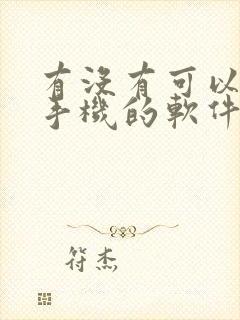 有沒有可以
手機的軟件
符杰